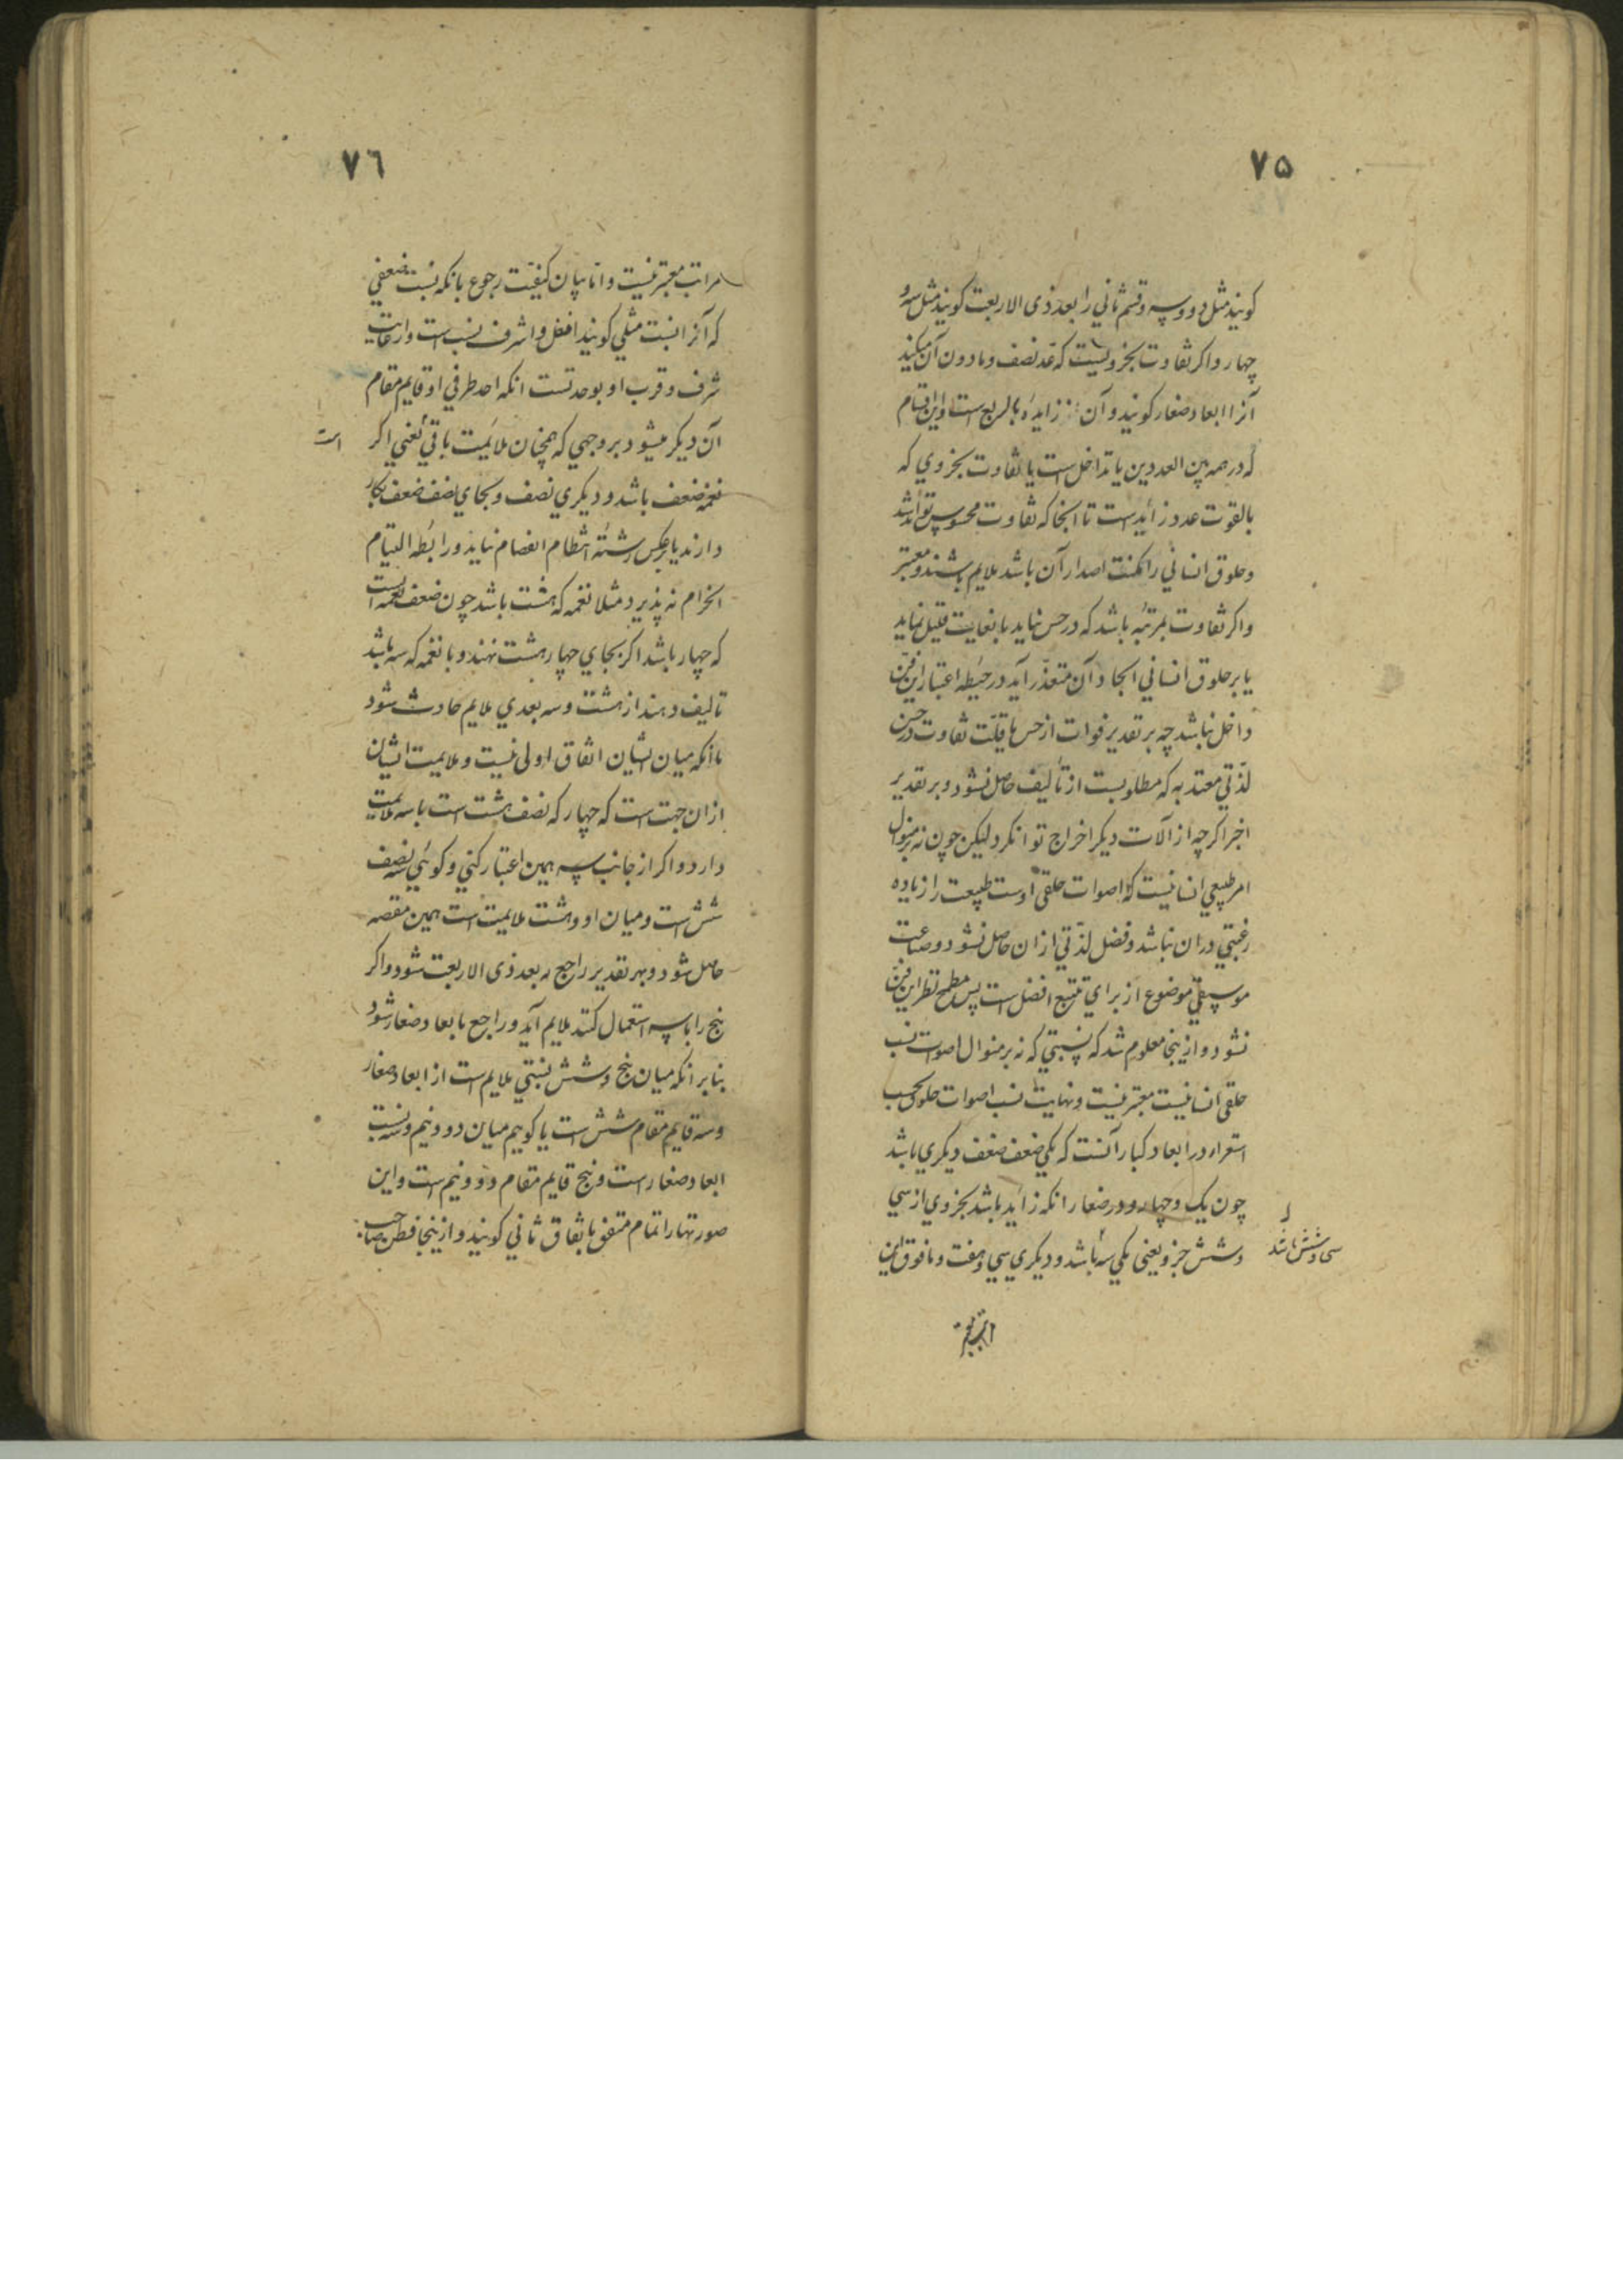 ٧۵
کویند مثل دو و سه و قسم ثانی را بعد ذی الاربعت کویند مثل سه و
چهار و اکر تفاوت بجزویست که عد نصف و مادون آن میکند
آنرا ابعاد صغار کویند و آن زایده بالربع است و این اقسام
که در همه بین العددین یا تداخل است یا تفاوت بجزوی که
بالقوت عدد زاید است تا انجا که تفاوت محسوس تواند شد
و حلوق انسانی را مکنت اصدار آن باشد ملایم باشند و معتبر
و اکر تفاوت بمرتبه باشد که در حس نیاید یا بغایت قلیل نماید
یا بر حلوق انسانی ایجاد آن متعذّر آید در حیطه اعتبار این فن
داخل نباشد چه بر تقدیر فوات از حس یا قلّت تفاوت در حس
لذّتی معتد به که مطلوبست از تألیف حاصل نشود و بر تقدیر
اخیر اکرچه از آلات دیکر اخراج توانکرد لیکن چون نه بر منوال
امر طبیعی انسانیست که اصوات حلقی اوست طبیعت را زیاده
رغبتی دران نباشد و فضل لذّتی ازان حاصل نشود و صناعت
موسیقی موضوع از برای تتبع افضل است پس مطمح نظر این فن
نشود و ازینجا معلوم شد که نسبتی که نه بر منوال اصوات نسب
حلقی انسانیست معتبر نیست و نهایت نسب اصوات حلوق بحسب
استقراء در ابعاد کبار آنست که یکی ضعف ضعف دیکری باشد
چون یک و چهار و در صغار انکه زاید باشد بجزوی از سی
و شش جزو یعنی یکی سه باشد و دیکری سی و هفت و مافوق این
سی و شش باشد
٧٦
مراتب معتبر نیست و اما بیان کیفیت رجوع بانکه نسبت ضعفی
که آنرا نسبت مثلی کویند افضل و اشرف نسب است و از غایت
شرف و قرب او بوحدتست انکه احد طرفی او قایم مقام
آن دیکر میشود بر وجهی که همچنان ملایمت باقی یعنی اکر
است
نغمه ضعف باشد و دیکری نصف و بجای نصف ضعف بکار
دارند یا برعکس رشته انتظام انفصام نیابد و رابطه التیام
انخرام نه پذیرد مثلا نغمه که هشت باشد چون ضعف نغمه است
که چهار باشد اکر بجای چهار هشت نهند و با نغمه که سه باشد
تالیف دهند از هشت و سه بعدی ملایم حادث شود
باانکه میان ایشان اتفاق اولی نیست و ملایمت ایشان
ازان جهت است که چهار که نصف هشت است با سه ملایمت
دارد و اکر از جانب سه همین اعتبار کنی و کوئی سه نصف
شش است و میان او و هشت ملایمت است همین مقصد
حاصل شود و بهر تقدیر راجع به بعد ذی الاربعت شود و اکر
پنج را با سه استعمال کنند ملایم آید و راجع بابعاد صغار شود
بنابر انکه میان پنج و شش نسبتی ملایم است از ابعاد صغار
و سه قایم مقام شش است یا کوییم میان دو و نیم و سه نسبت
ابعاد صغار است و پنج قایم مقام دو و نیم است و این
صورتها را تمام متفق باتفاق ثانی کویند و ازینجا فطن صاحب